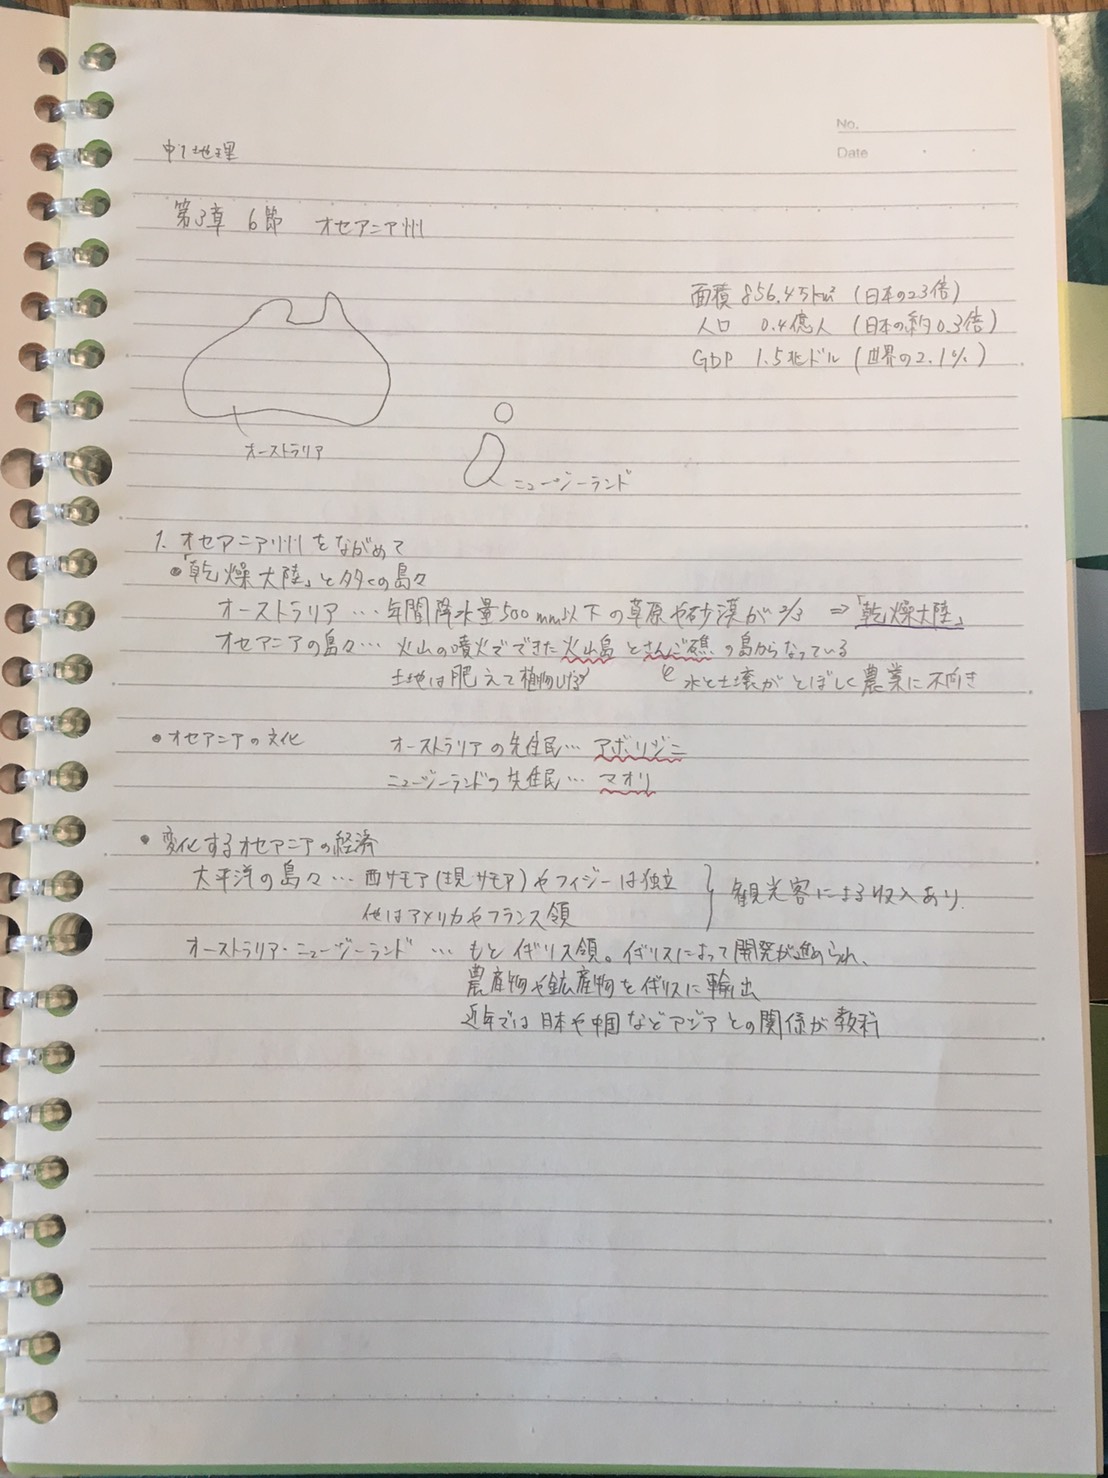 No.
Date
中1地理
第3章 6節 オセアニア州
面積 856.4万km² (日本の23倍)
人口 0.4億人 (日本の約0.3倍)
GDP 1.5兆ドル (世界の2.1%)
オーストラリア
ニュージーランド
1. オセアニア州をながめて
●「乾燥大陸」と多くの島々
オーストラリア… 年間降水量500mm以下の草原や砂漠が2/3 ⇒「乾燥大陸」
オセアニアの島々… 火山の噴火でできた火山島とさんご礁の島からなっている
土地は肥えて植物
水と土壌がとぼしく農業に不向き
●オセアニアの文化 オーストラリアの先住民… アボリジニ
ニュージーランドの先住民… マオリ
● 変化するオセアニアの経済
太平洋の島々… 西サモア(現サモア)やフィジーは独立
他はアメリカやフランス領
観光客による収入あり.
オーストラリア・ニュージーランド … もとイギリス領。イギリスによって開発が進められ、
農産物や鉱産物をイギリスに輸出
近年では日本や中国などアジアとの関係が